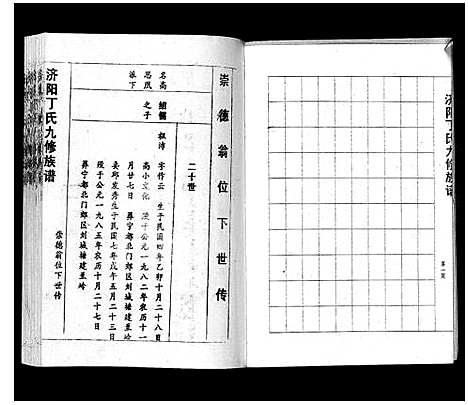 济阳丁氏九修族谱
第一页
崇德翁位下世传
二十世
名高 绍儒 祖涛 字作云 生于民国四年乙卯十月二十八日
思凤 之子 高小文化 殁于公元一九八二年农历十一
派下 月廿七日 葬宁都北门郊区刘城塘建至岭
姜邱发秀生于民国七年戊午五月二十三日
殁于公元一九八五年农历十月二十七日
葬宁都北门郊区刘城塘建至岭
济阳丁氏九修族谱
崇德翁位下世传